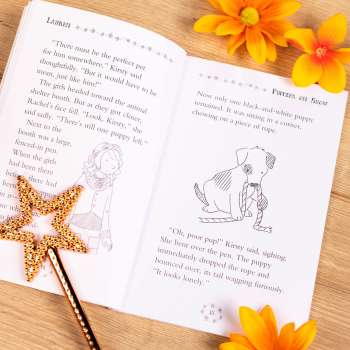 LAUREN
"There must be the perfect pet
for him somewhere," Kirsty said
thoughtfully. "But it would have to be
mean, just like him!"
The girls headed toward the animal
shelter booth. But as they got closer,
Rachel's face fell. "Look, Kirsty," she
said sadly. "There's still one puppy left."
Next to the
booth was a large,
fenced-in pen.
When the girls
had been there
before, there had
been
PUPPIES ON SHOW
Now only one black-and-white puppy
remained. It was sitting in a corner,
chewing on a piece of rope.
"Oh, poor pup!" Kirsty said, sighing.
She bent over the pen. The puppy
immediately dropped the rope and
bounced over, its tail wagging furiously.
"It looks lonely."